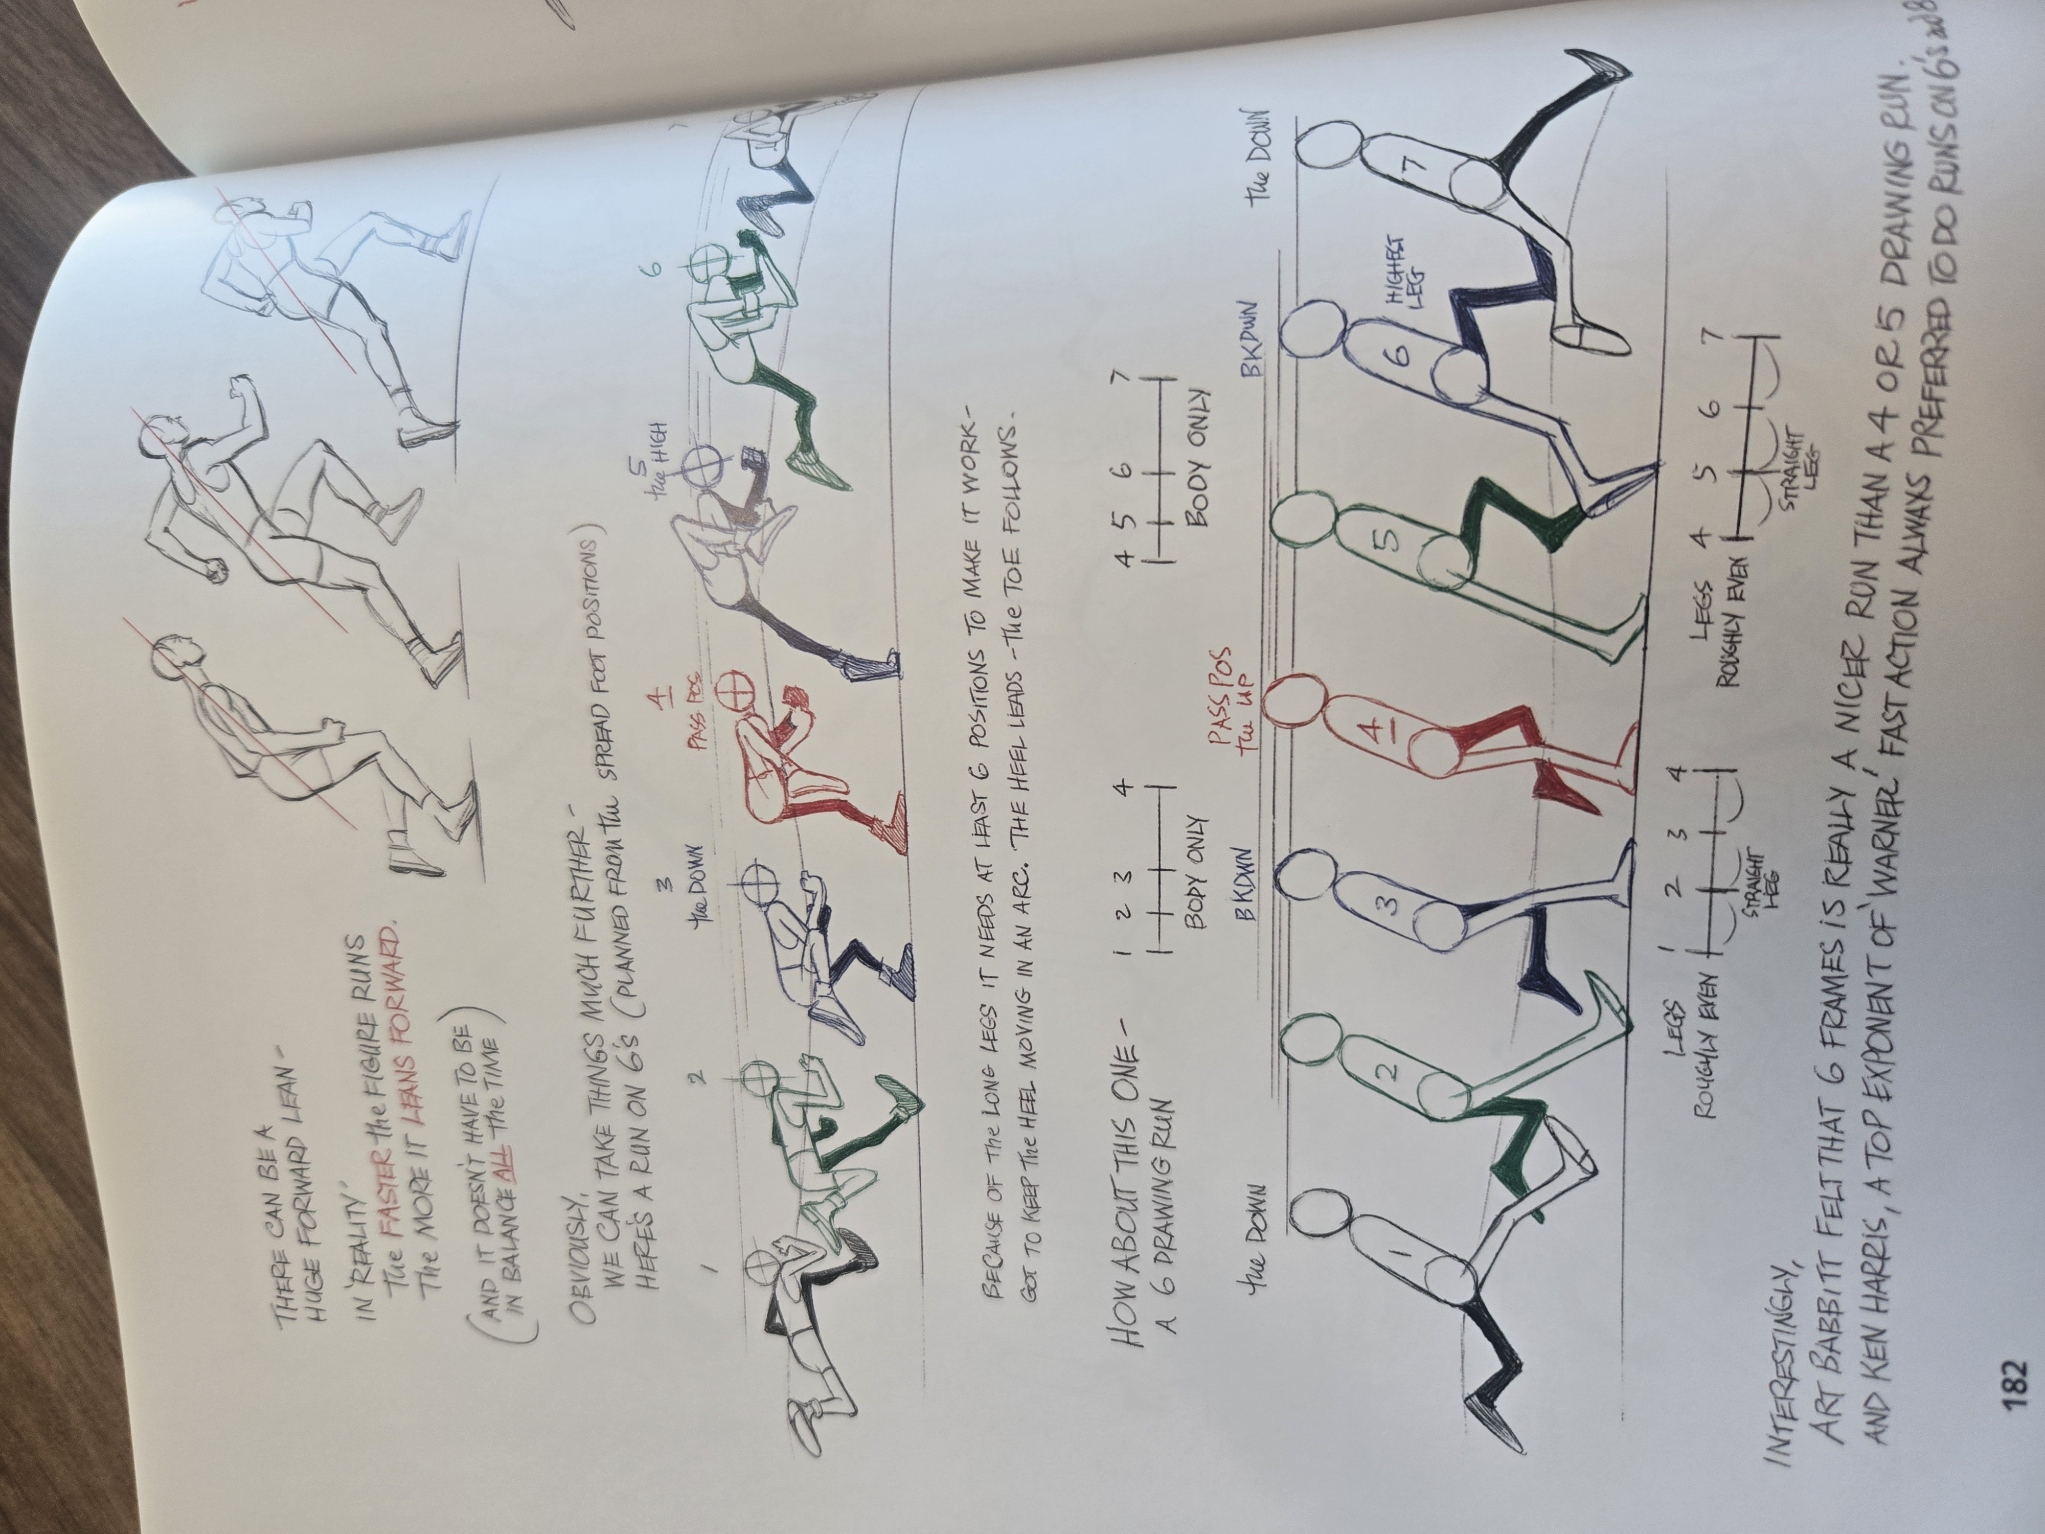 THERE CAN BE A
HUGE FORWARD LEAN -
IN 'REALITY'
The FASTER the FIGURE RUNS
The MORE IT LEANS FORWARD.
(AND IT DOESN'T HAVE TO BE
IN BALANCE ALL the TIME)
OBVIOUSLY,
WE CAN TAKE THINGS MUCH FURTHER -
HERE'S A RUN ON 6'S (PLANNED FROM the SPREAD FOOT POSITIONS)
1 2 3 4 5 6 7
the DOWN PASS POS the HIGH
BECAUSE OF the LONG LEGS IT NEEDS AT LEAST 6 POSITIONS TO MAKE IT WORK -
GOT TO KEEP the HEEL MOVING IN AN ARC. THE HEEL LEADS - the TOE FOLLOWS.
HOW ABOUT THIS ONE -
A 6 DRAWING RUN
1 2 3 4
BODY ONLY
4 5 6 7
BODY ONLY
the DOWN
BKDWN
PASS POS
the UP
BKDWN
the DOWN
1 2 3 4 5 6 7
HIGHEST
LEG
LEGS 1 2 3 4
ROUGHLY EVEN
STRAIGHT
LEG
LEGS 4 5 6 7
ROUGHLY EVEN
STRAIGHT
LEG
INTERESTINGLY,
ART BABBITT FELT THAT 6 FRAMES IS REALLY A NICER RUN THAN A 4 OR 5 DRAWING RUN.
AND KEN HARRIS, A TOP EXPONENT OF 'WARNER' FAST ACTION ALWAYS PREFERRED TO DO RUNS ON 6's and 8
182